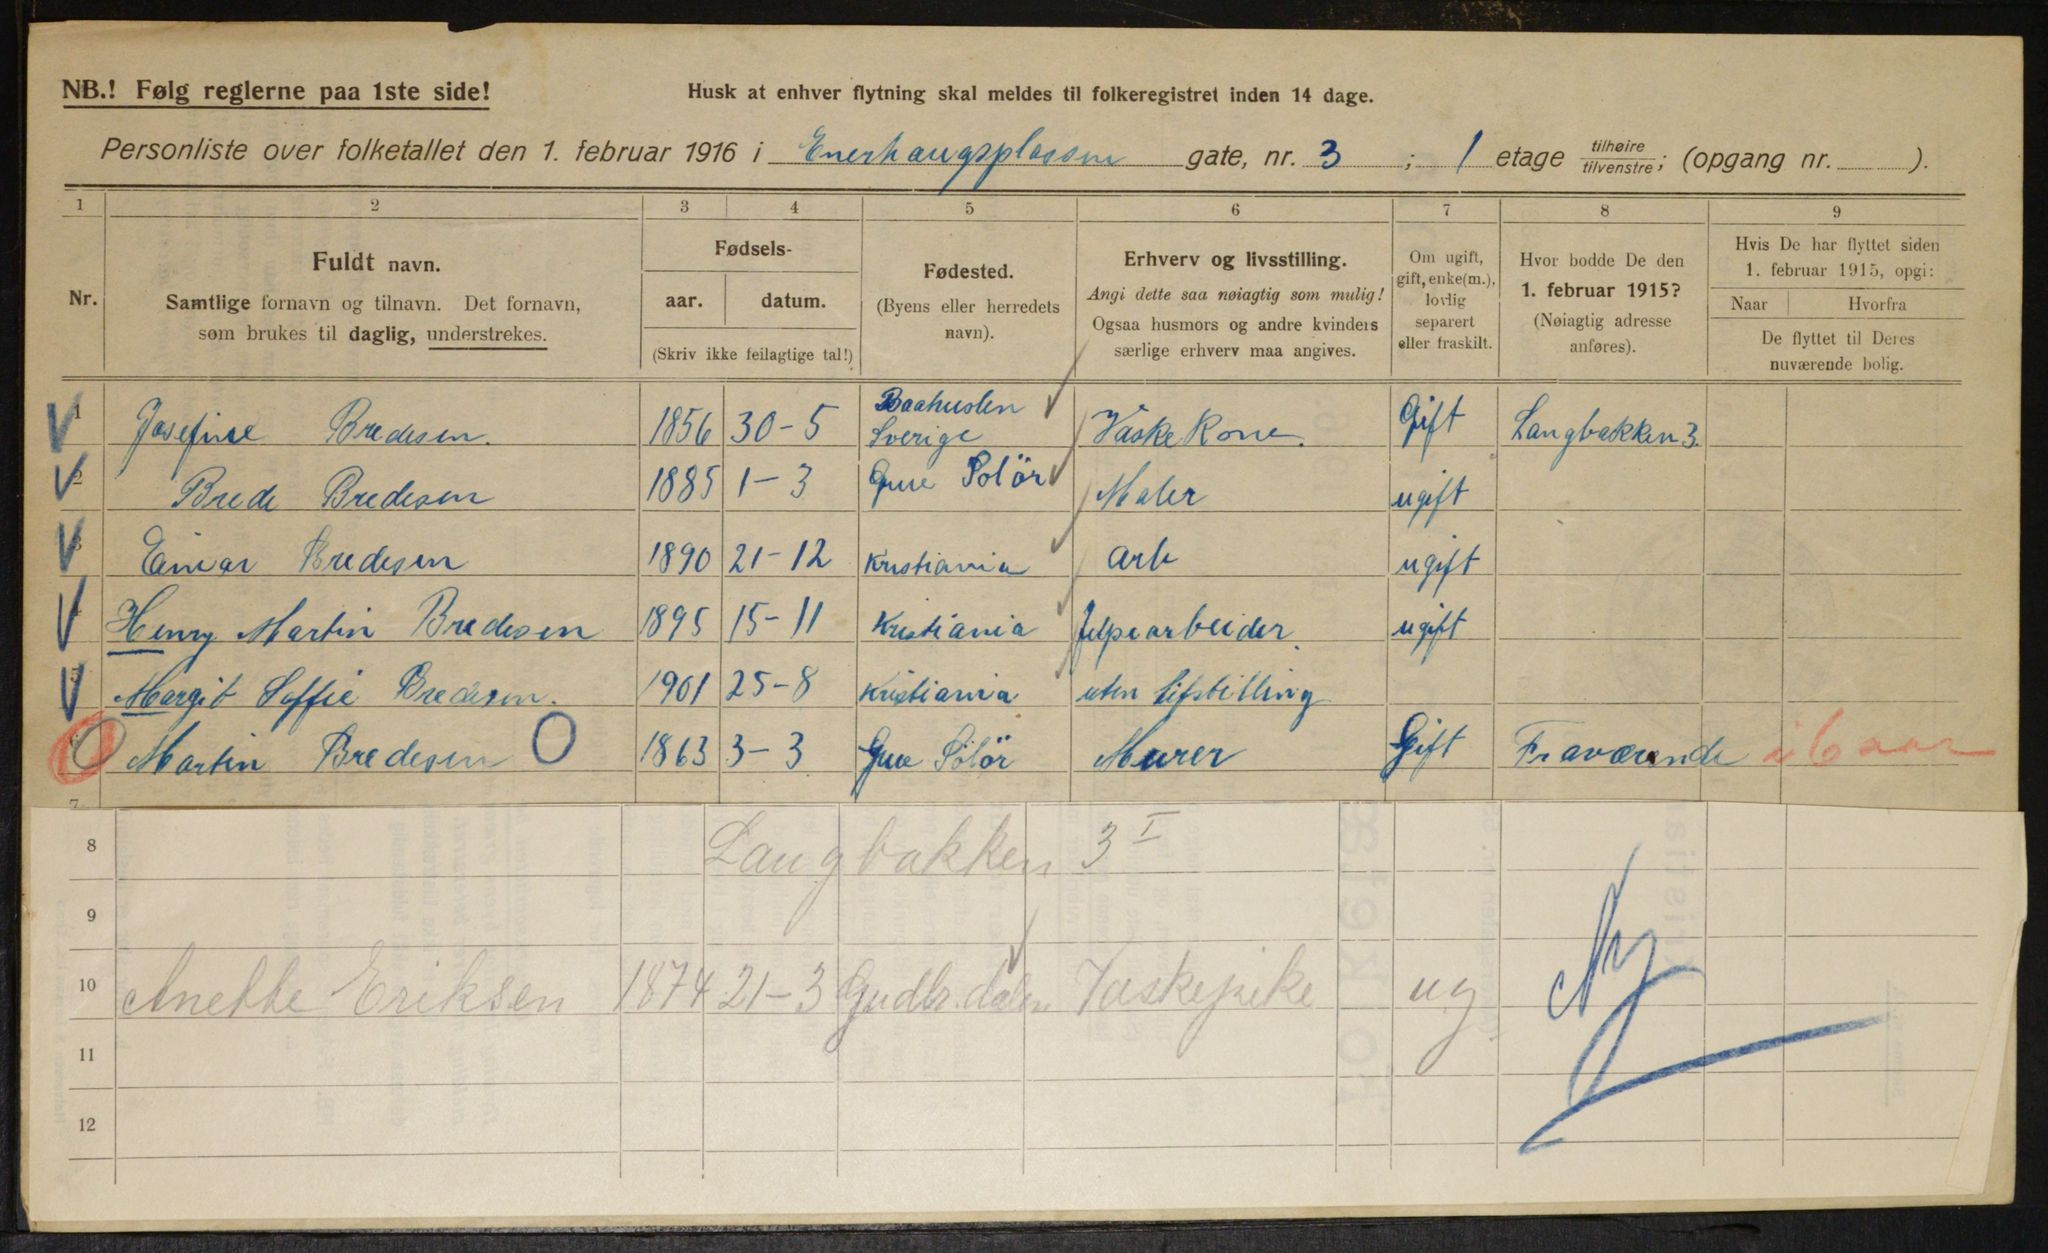 NB.! Følg reglerne paa 1ste side!
Husk at enhver flytning skal meldes til folkeregistret inden 14 dage.
Personliste over folketallet den 1. februar 1916 i Enerhaugsplassen gate, nr. 3 ; 1 etage tilhøire tilvenstre; (opgang nr. ).
1 2 3 4 5 6 7 8 9
Nr.
Fuldt navn.
Samtlige fornavn og tilnavn. Det fornavn,
som brukes til daglig, understrekes.
Fødsels-
aar. datum.
(Skriv ikke feilagtige tal!)
Fødested.
(Byens eller herredets
navn).
Erhverv og livsstilling.
Angi dette saa nøiagtig som mulig!
Ogsaa husmors og andre kvinders
særlige erhverv maa angives.
Om ugift,
gift, enke(m.),
lovlig
separert
eller fraskilt.
Hvor bodde De den
1. februar 1915?
(Nøiagtig adresse
anføres).
Hvis De har flyttet siden
1. februar 1915, opgi:
Naar Hvorfra
De flyttet til Deres
nuværende bolig.
1 Josefine Bredesen. 1856 30-5 Baahuslen Sverige Vaske Kone. Gift Langbakken 3.
2 Brede Bredesen 1885 1-3 Grue Solör Maler ugift
3 Einar Bredesen 1890 21-12 Kristiania arb ugift
4 Henry Martin Bredesen 1895 15-11 Kristiania Jelpearbeider. ugift
5 Margit Soffie Bredesen. 1901 25-8 Kristiania uten lifstilling
6 Martin Bredesen O 1863 3-3 Grue Sölör Murer Gift Fraværende i 6 aar
7
8 Langbakken 3 I
9
10 Anethe Eriksen 1874 21-3 Gudbr.dalen Vaskepike ug Ny
11
12